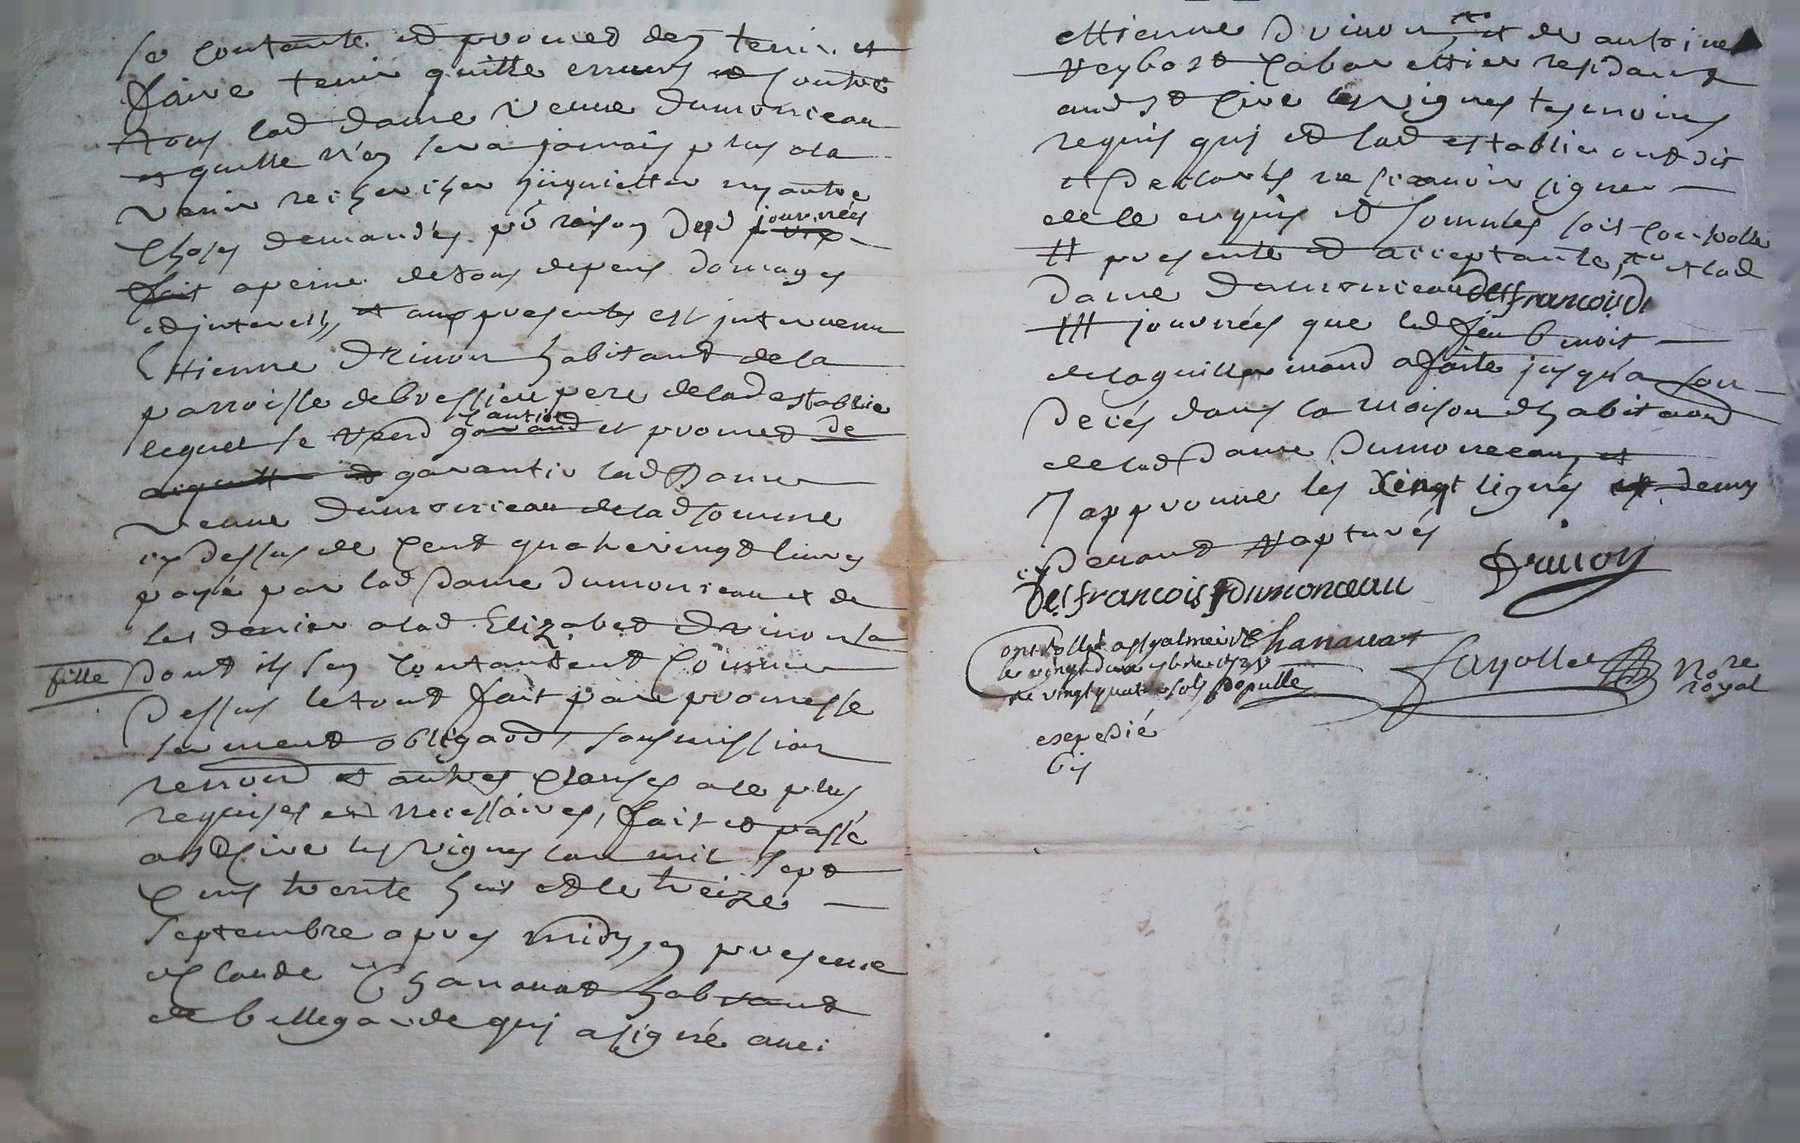 se contente et promet den tenir et
faire tenir quitte envers et contre
tous lad dame veuve dumonceau
et quelle n'en sera jamais plus ala
venir recherchee inquiettee ny autre
choses demandés pr raison desd journées
fait apeine de tous depens domages
et interests, et aux presentes est intervenu
Ettienne Drivon habitant de la
parroisse de bressieu pere de lad establie
lequel se rend caution et promet de
garantir lad Dame
veuve Dumonceau de lad somme
cy dessus de cent quatrevingt livres
payé par lad Dame dumonceau et de
les denier a lad Elizabet Drivon sa
fille dont ils sen contantent comme
Dessus le tout fait par promesse
serment obligaon, soumission
renond et autres clauses ale plus
requises et necessaires, fait et passé
aud St Cire les vignes lan mil sept
cens trente huit et le treize
septembre apres midy, en presence
de Claude Chanavat habitant
de bellegarde qui a signé avec
ettienne Drivon, et de antoine
Reybost Cabarettier residant
aud St Cire les vignes tesmoins
requis qui et lad establie ont dit
et Declarés ne scavoir signer
de ce enquis et sommés soit controllé
# presente et acceptante, et lad
dame Dumonceau desfrancois D
## journées que led feu benoit
delaguillermond a faite jusqu'a son
deces dans la maison dhabitaon
de lad Dame Dumonceau et
J approuve les vingt lignes et demy
cy devant et apturés
Desfrancois Dumonceau Drivon
Controllé a st galmier Chanavat
le vingt deux 7bre 1738
Re vingt quatre sols Depulle
fayolle Nore
royal
expedié
bis